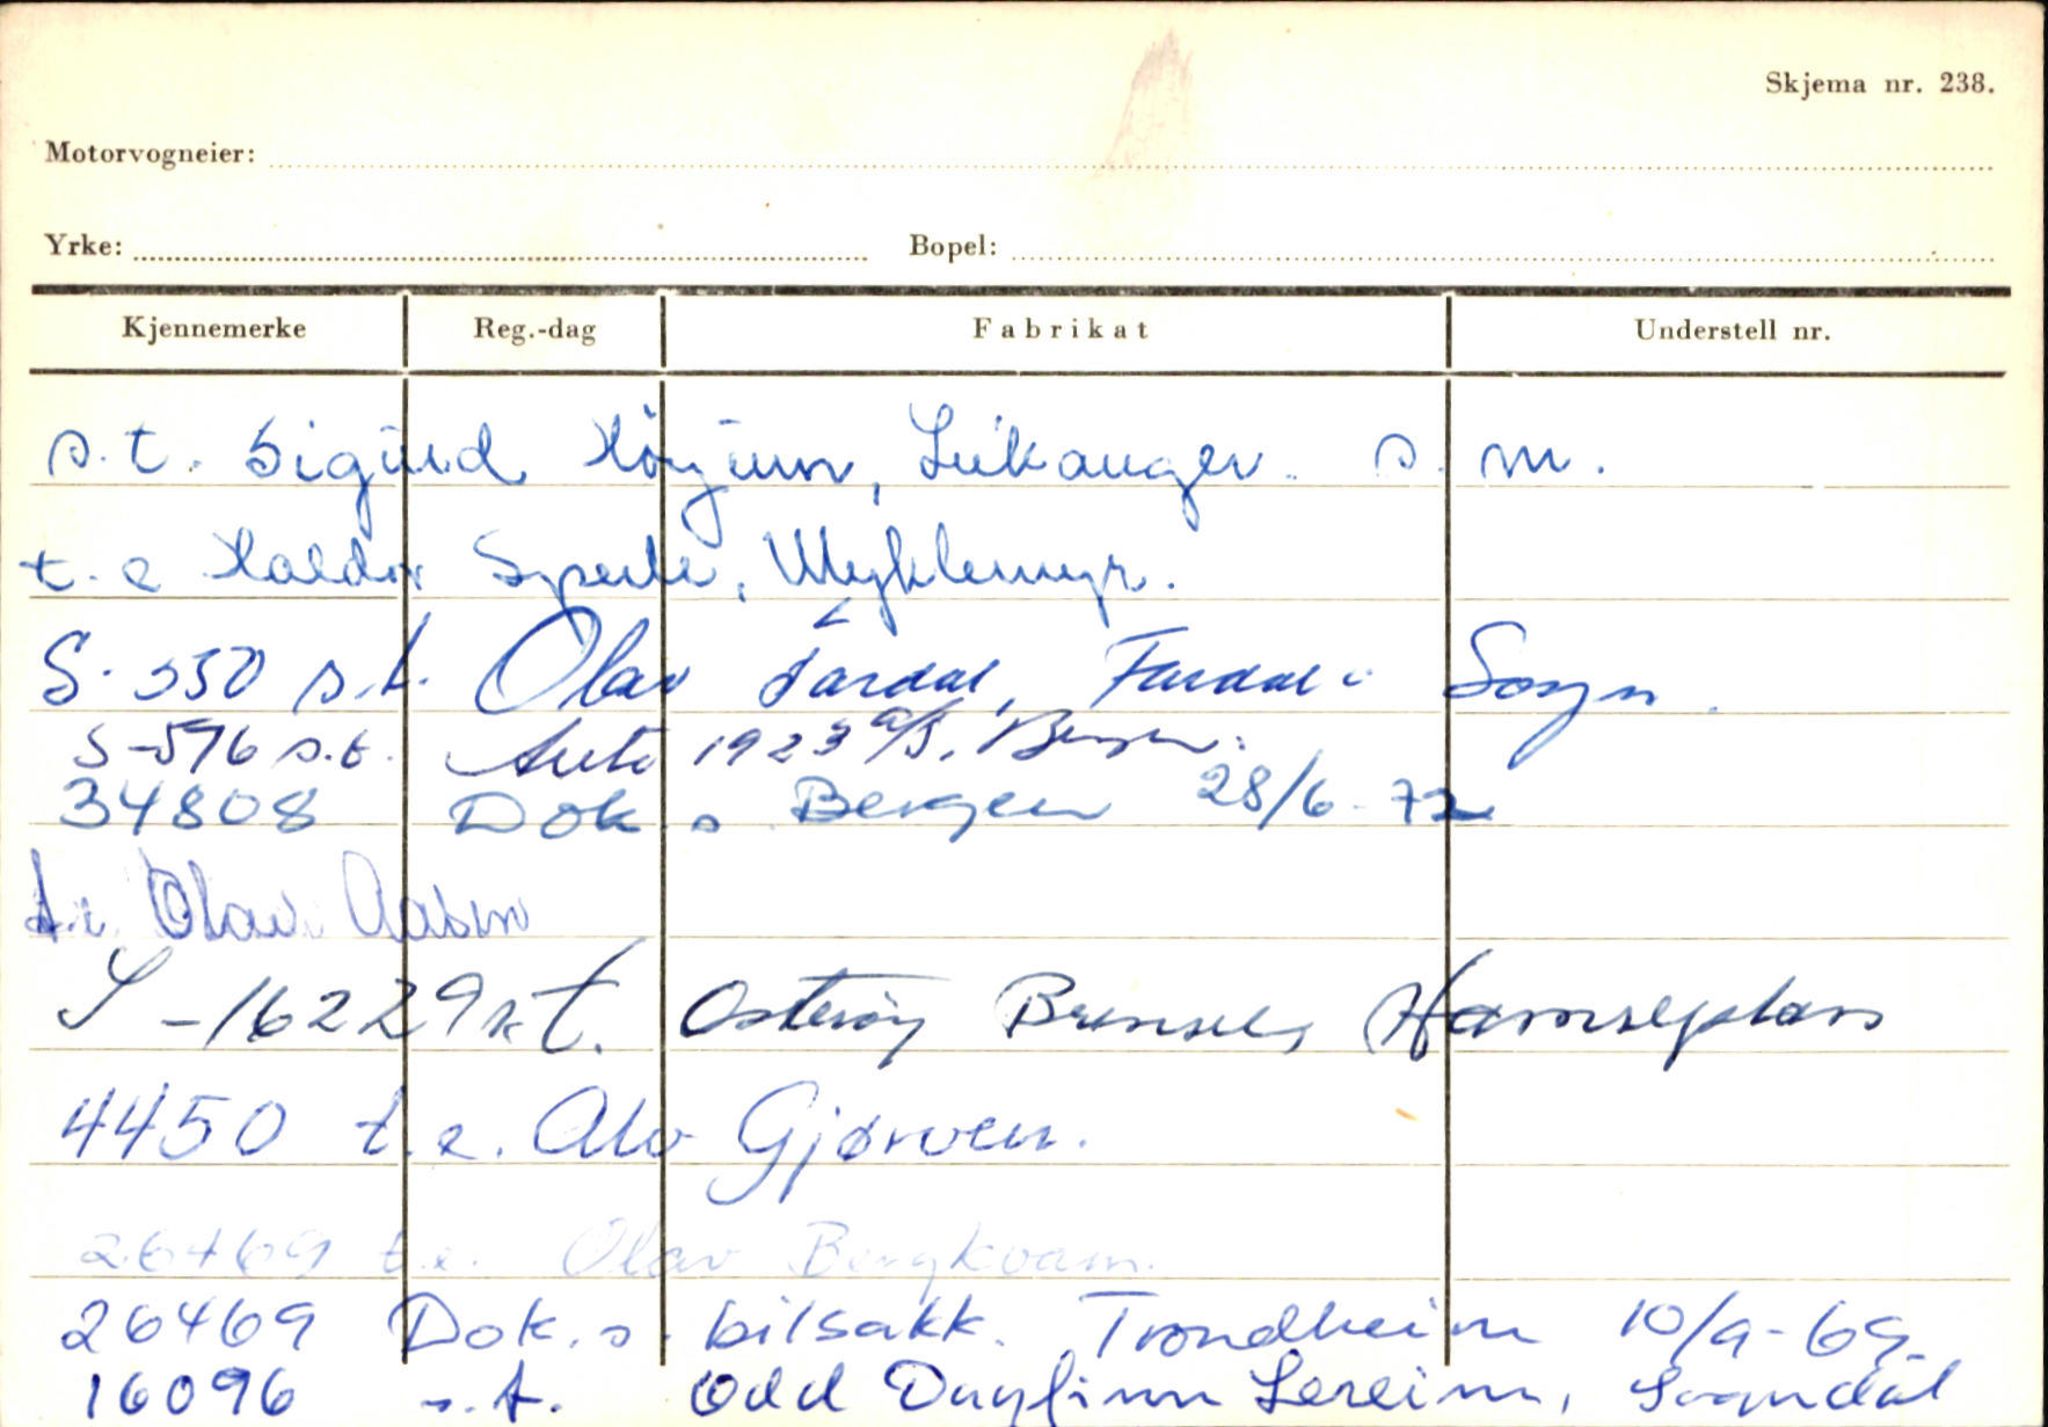 Skjema nr. 238.
Motorvogneier:
Yrke: Bopel:
Kjennemerke Reg.-dag Fabrikat Understell nr.
s.t. Sigurd Leikanger. s. m.
t. e Haldor Sperle, Myklemyr.
S. 550 s.t. Olav Fardal, Fardal i Sogn.
S-596 s.t. Auto 1923 a/s, Bergen.
34808 Dok. s. Bergen 28/6-72
t.e. Olav Aaben
S-16229 s.t. Osterøy Brensel, Hamreplass
4450 t.e. Alv Gjørven.
26469 t.e. Olav Bergkvam.
26469 Dok. s. bilsakk. Trondheim 10/9-69
16096 s.t. Odd Dagfinn Lereim, Sogndal